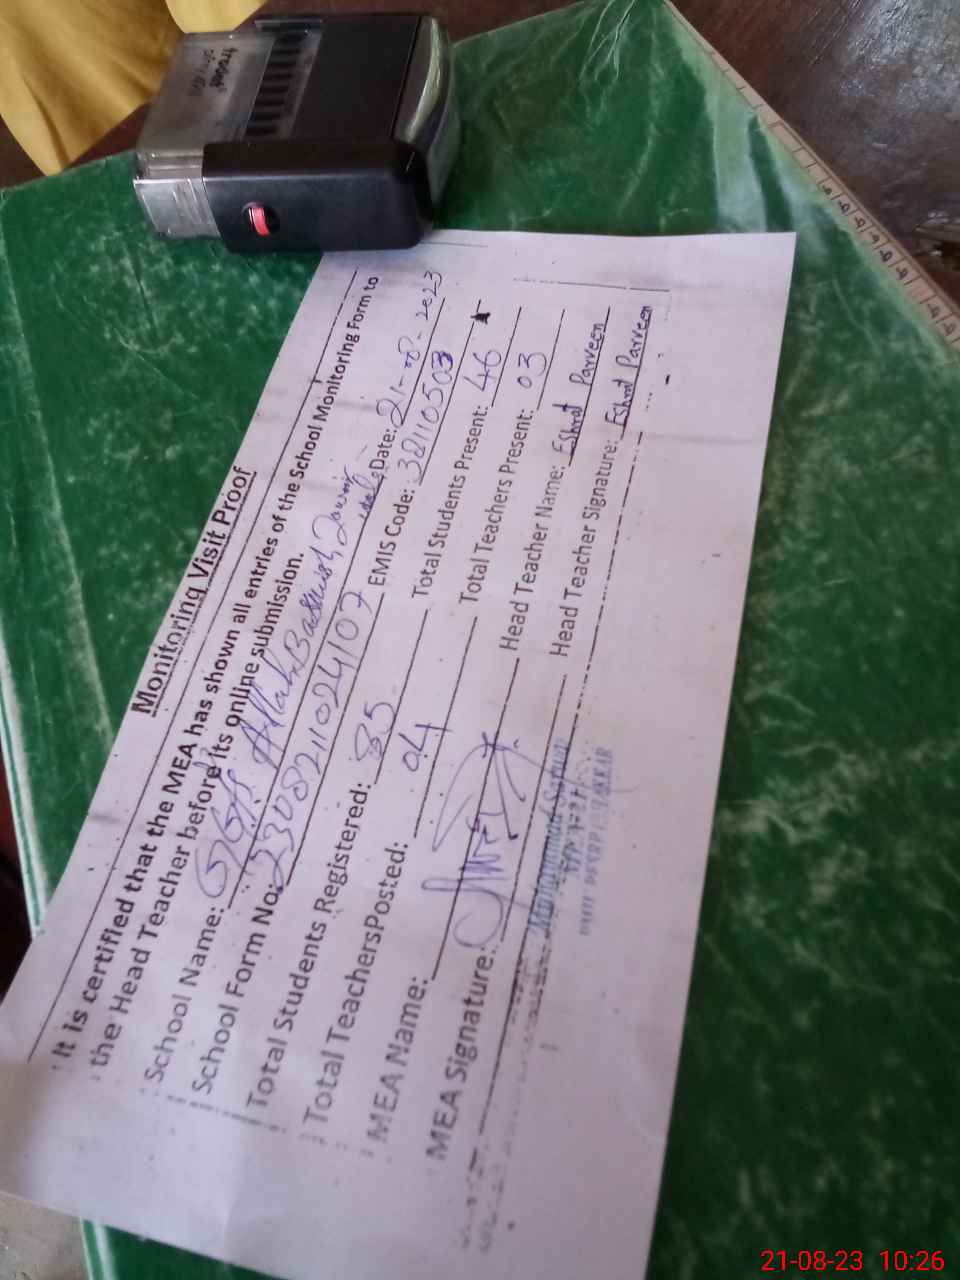 Monitoring Visit Proof
It is certified that the MEA has shown all entries of the School Monitoring Form to
the Head Teacher before its online submission.
School Name: Allah Date: 21-08-2023
School Form No: 2308211024107 EMIS Code: 38110503
Total Students Registered: 85 Total Students Present: 46
Total TeachersPosted: 04 Total Teachers Present: 03
MEA Name: Head Teacher Name: Eshrat Parveen
MEA Signature: Head Teacher Signature: Eshrat Parveen
Muhammad
21-08-23 10:26